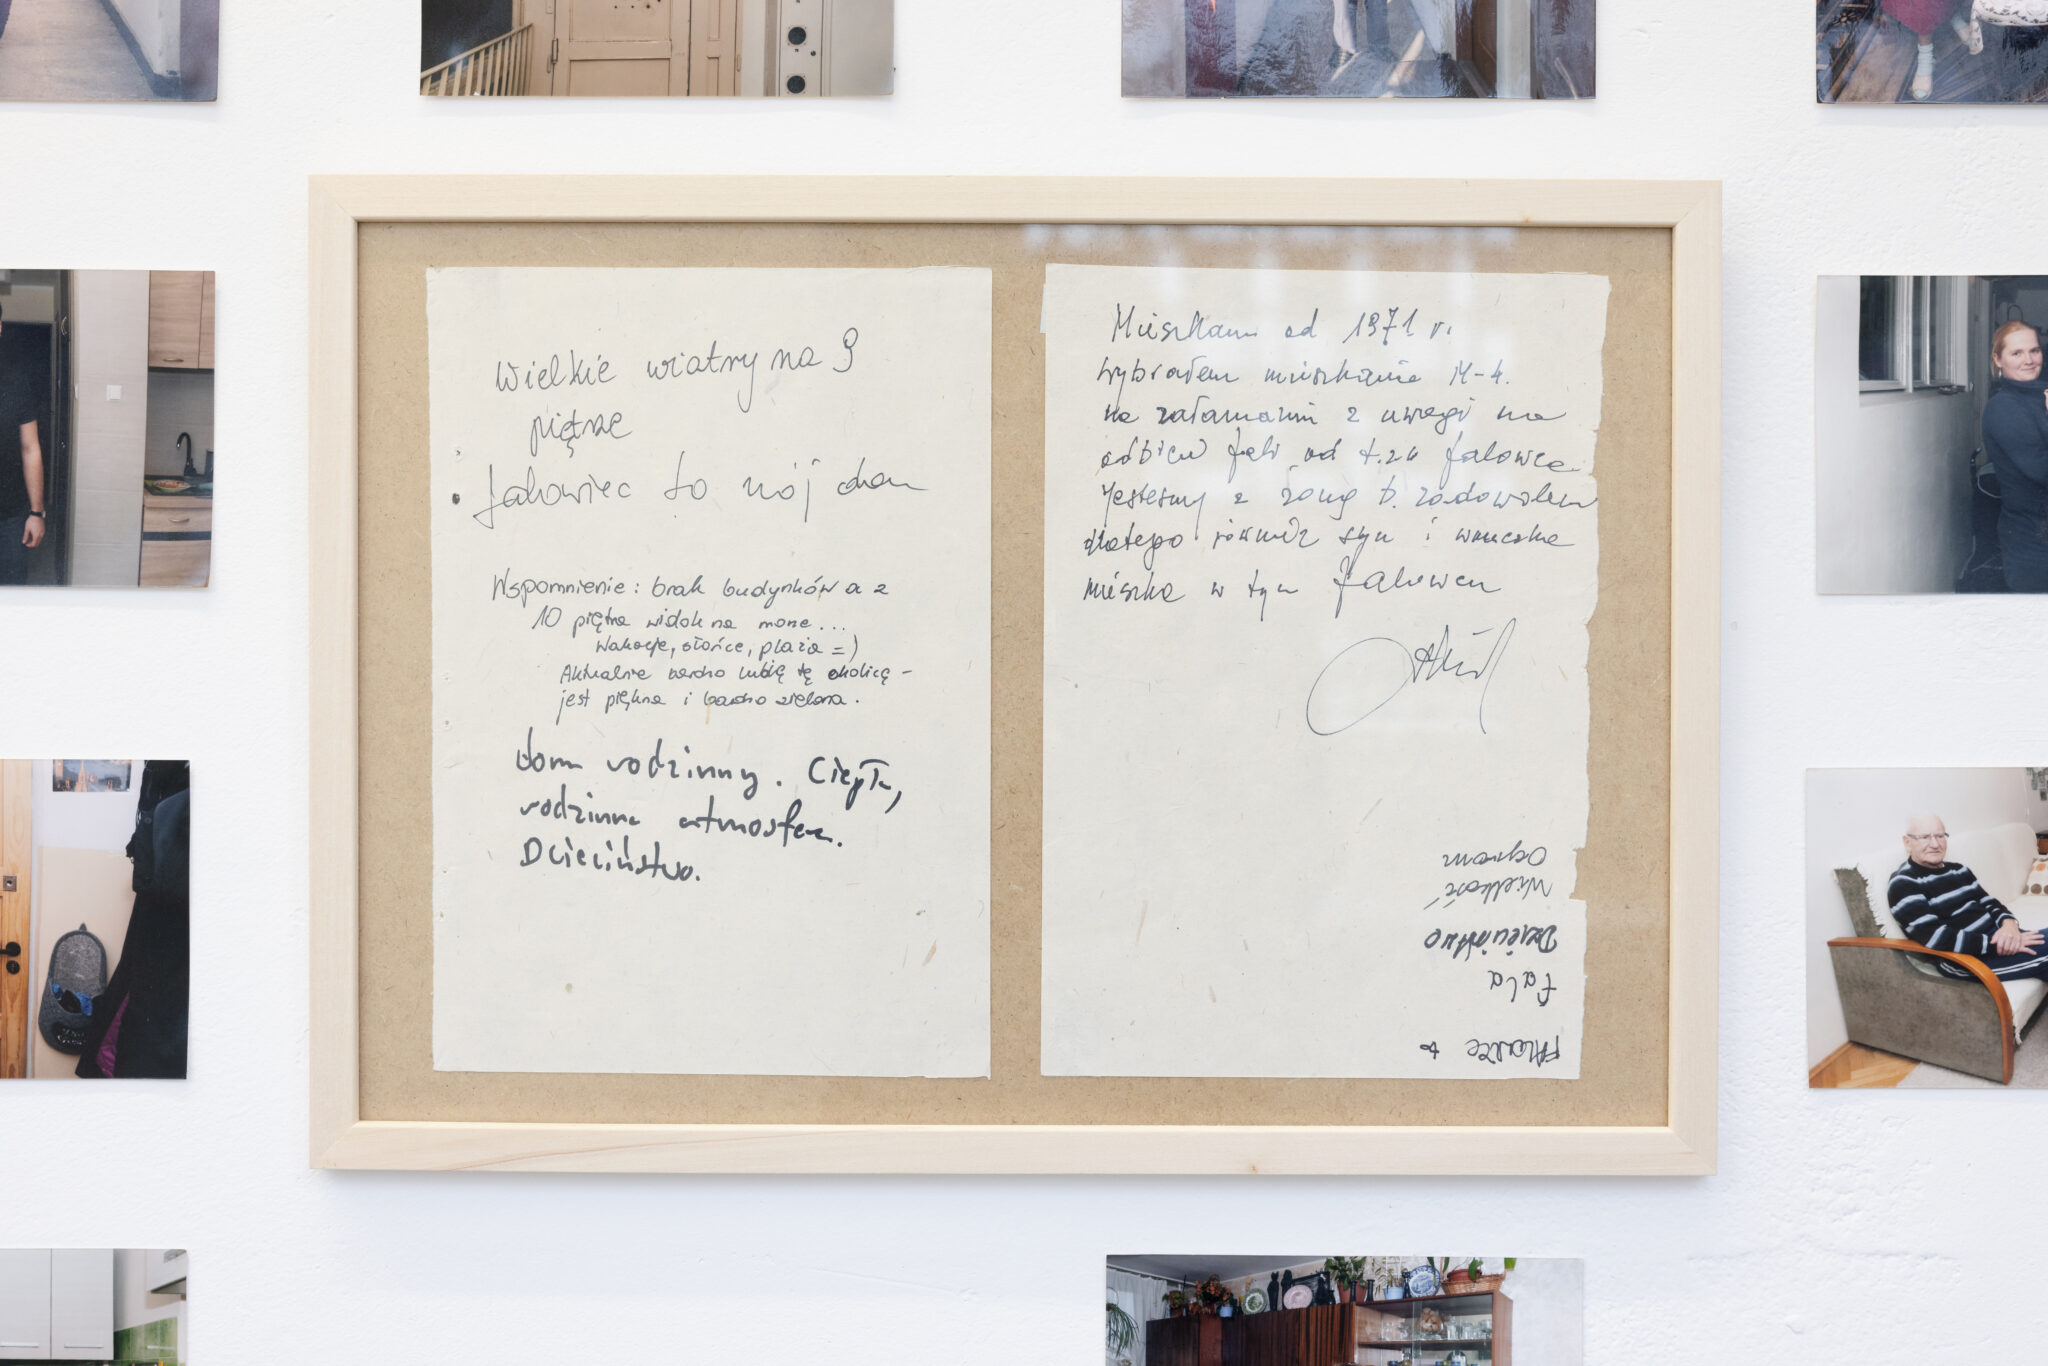 Wielkie wiatry na 9
piętrze
• falowiec to mój dom
Wspomnienie: brak budynków a z
10 piętra widok na morze...
Wakacje, słońce, plaża =)
Aktualnie bardzo lubię tę okolicę -
jest piękna i bardzo zielona.
dom rodzinny. Ciepła,
rodzinna atmosfera.
Dzieciństwo.
Mieszkam od 1971 r.
wybrałem mieszkanie M-4.
na załamaniu z uwagi na
odbicie fal od t.zw falowca
Jesteśmy z żoną b. zadowoleni
dlatego również syn i wnuczka
mieszka w tym falowcu
Ogrom
Wielkość
Dzieciństwo
fala